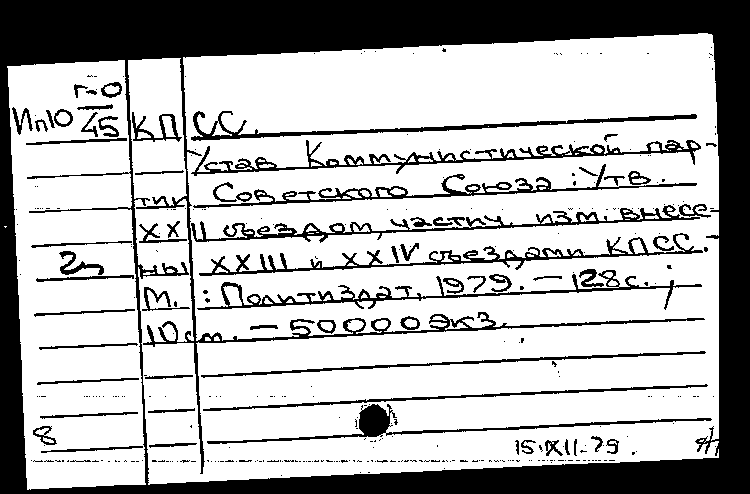 Г-О
Ип10 45 КПСС.
Устав Коммунистической пар-
тии Советского Союза : Утв.
XXII съездом, частич. изм. внесе-
2э ны XXIII и XXIV съездами КПСС.-
М. : Политиздат, 1979. — 128 с. ;
10 см. — 50000 экз.
8
15.XII-79.